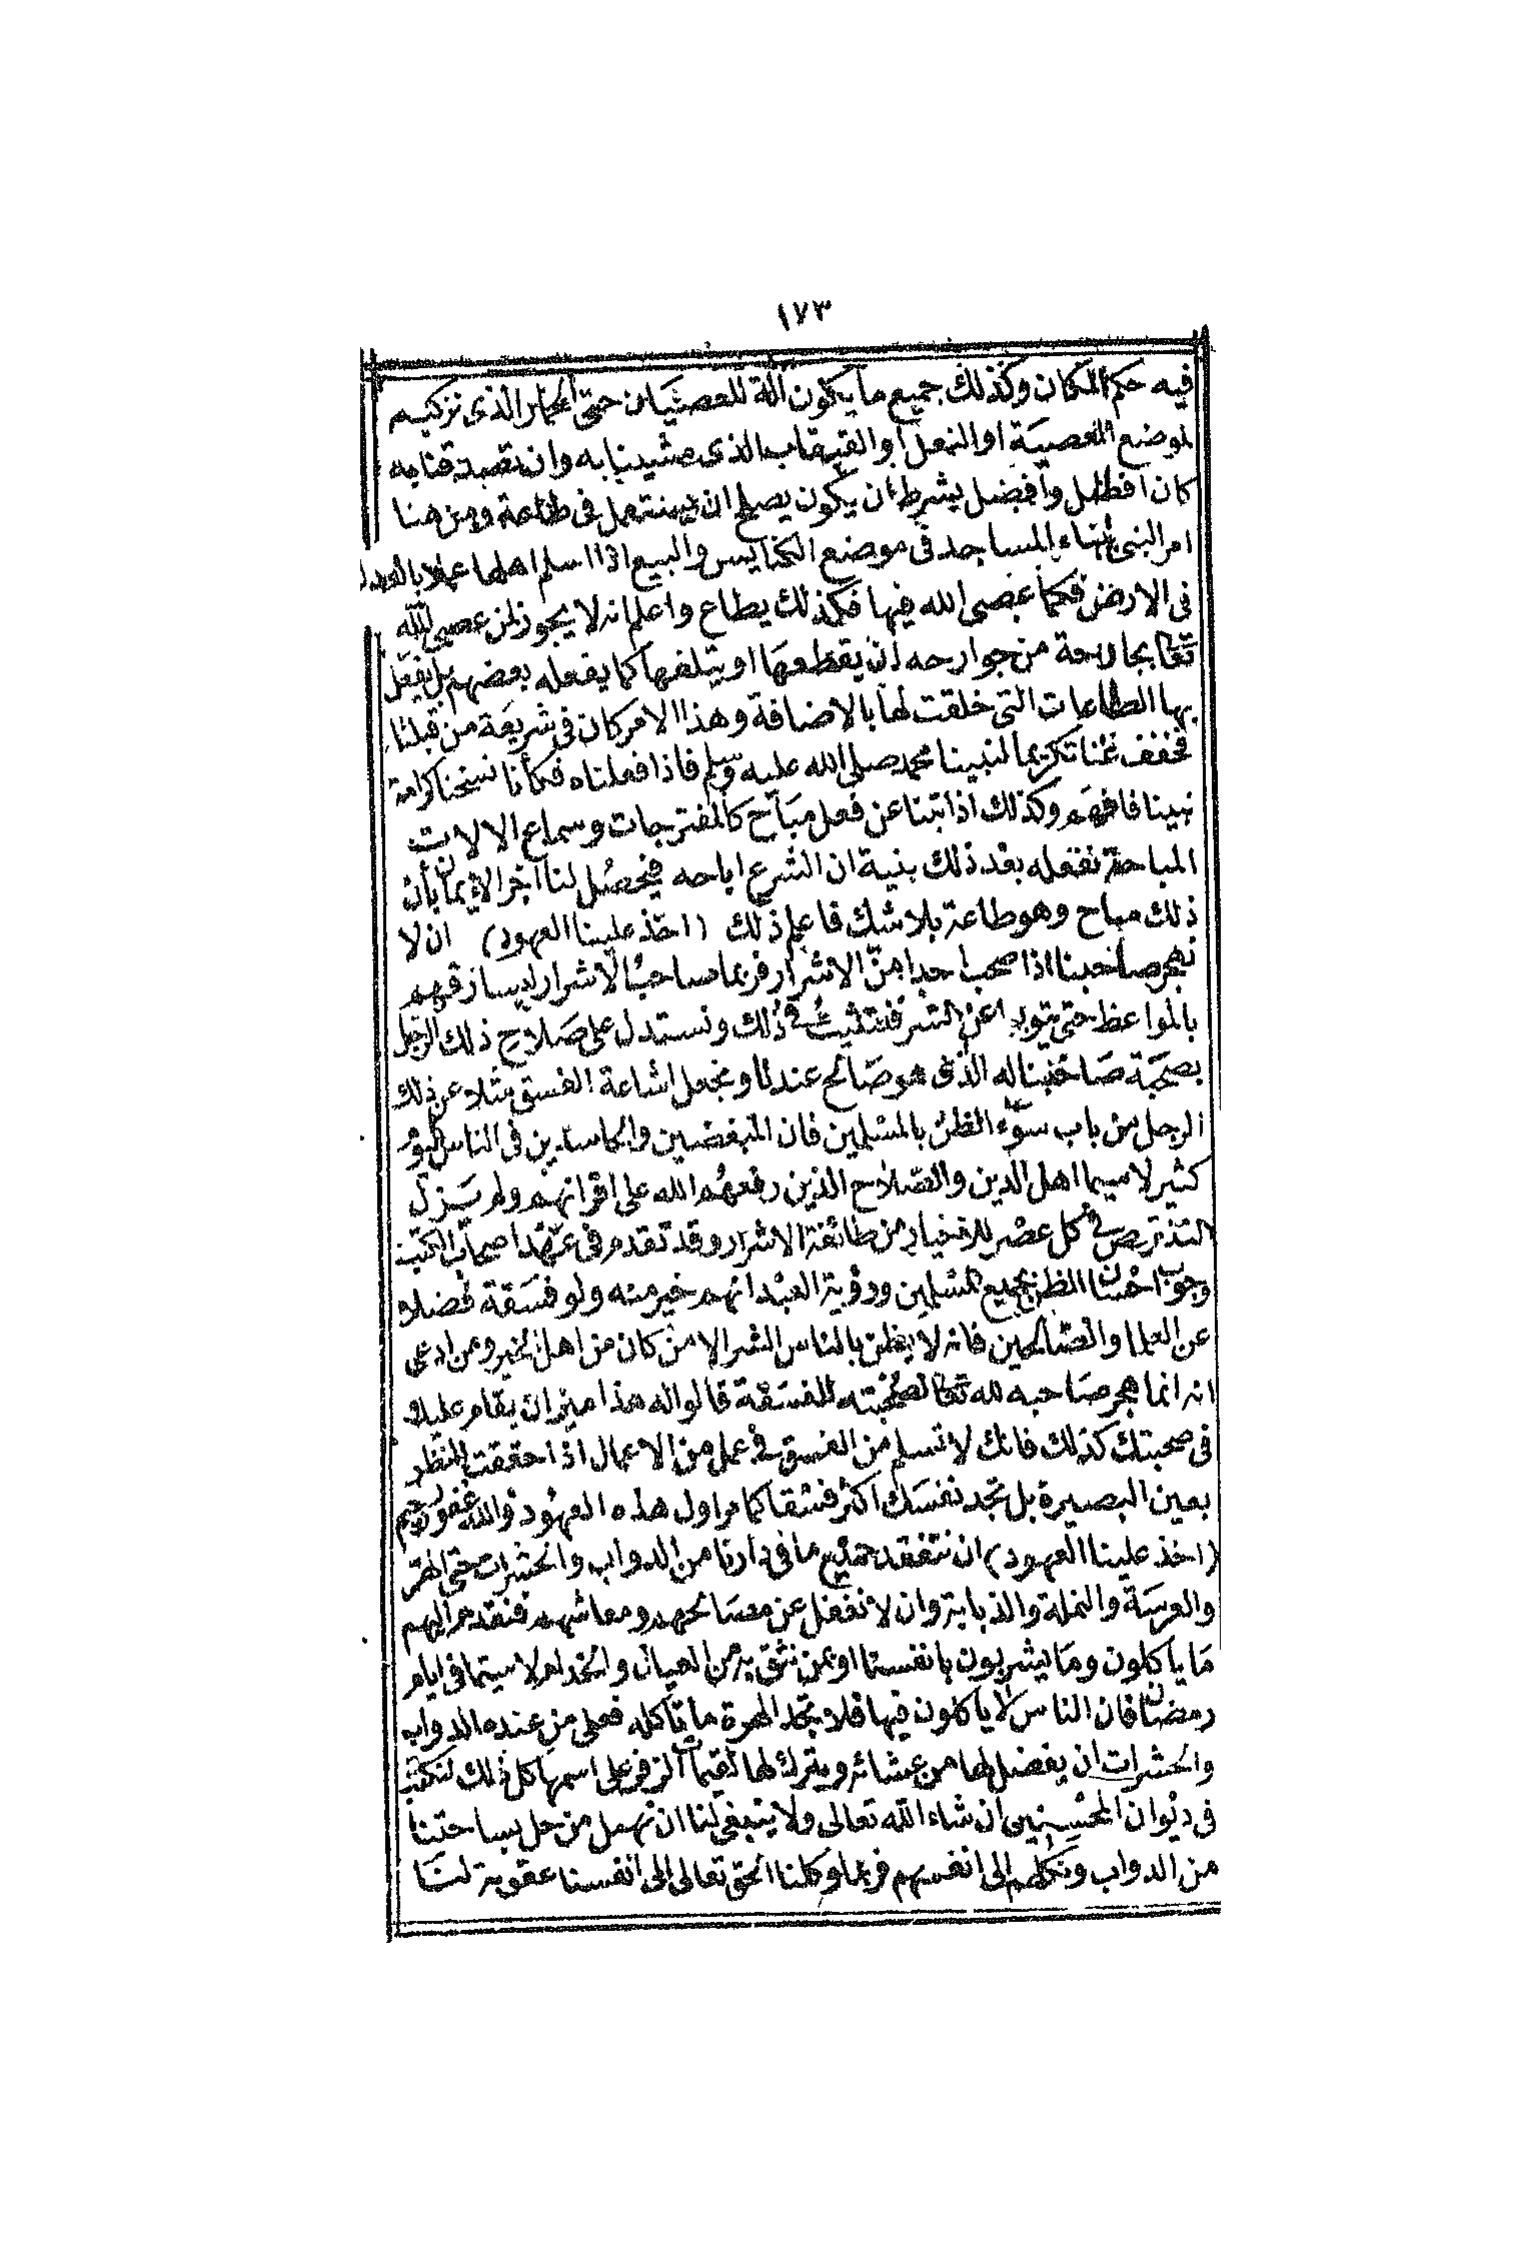 ١٧٣
فيه حكم المكان وكذلك جميع ما يكون آلة للعصيان حتى الحمار الذى نركبه
لموضع المعصية او النعل او القبقاب الذى مشينا به وان تصدقنا به
كان افضل وافضل بشرط ان يكون يصلح ان يستعمل فى طاعة ومن هنا
امر النبى ببناء المساجد فى موضع الكنايس والبيع اذا اسلم اهلها عملا بالعدل
فى الارض فكما عصى الله فيها فكذلك يطاع واعلم انه لا يجوز لمن عصى الله
تعالى بجارحة من جوارحه ان يقطعها او يتلفها كما يفعله بعضهم بل يفعل
بها الطاعات التى خلقت لها بالاضافة وهذا الامر كان فى شريعة من قبلنا
فخفف عنا تكريما لنبينا محمد صلى الله عليه وسلم فاذا فعلناه فكأنا نسخنا كرامة
نبينا فافهم وكذلك اذا تبنا عن فعل مباح كالمفترجات وسماع الالات
المباحة نفعله بعد ذلك بنية ان الشرع اباحه فيحصل لنا اجر الايمان بأن
ذلك مباح وهو طاعة بلا شك فاعلم ذلك (اخذ علينا العهود) ان لا
نهجر صاحبنا اذا صحب احدا من الاشرار فربما صاحب الاشرار ليسارقهم
بالمواعظ حتى يتوبوا عن الشر فنتثبت فى ذلك ونستدل على صلاح ذلك الرجل
بصحبة صاحبنا له الذى هو صالح عندنا ونجعل اشاعة الفسق مثلا عن ذلك
الرجل من باب سوء الظن بالمسلمين فان المبغضين والحاسدين فى الناس اليوم
كثير لا سيما اهل الدين والصلاح الذين رفعهم الله على اقرانهم ولم يزل
التربص فى كل عصر للاخيار من طائفة الاشرار وقد تقدم فى عهد اصحاب الكتب
وجوب احسان الظن بجميع المسلمين ورؤية العبد انهم خير منه ولو فسقة فضلا
عن العلما والصالحين فانه لا يظن بالناس الشر الا من كان من اهل الخير ومن ادعى
انه انما هجر صاحبه لله تعالى لصحبته للفسقة قالوا له هذا ميزان يقام عليك
فى صحبتك كذلك فانك لا تسلم من الفسق فى عمل من الاعمال اذا حققت النظر
بعين البصيرة بل تجد نفسك اكثر فسقا كما مر اول هذه العهود والله غفور رحيم
(اخذ علينا العهود) ان نتفقد جميع ما فى دارنا من الدواب والحشرات حتى الهر
والعرسة والنملة والذبابة وان لا نغفل عن مصالحهم ومعاشهم فنقدم اليهم
ما ياكلون وما يشربون بانفسنا او بمن نثق به من العيال والخدام لا سيما فى ايام
رمضان فان الناس لا ياكلون فيها فلا تجد الهرة ما تأكله فعلى من عنده الدواب
والحشرات ان يفضل لها من عشائه ويترك لها لقيمات الزفر على اسمها كل ذلك لنكتب
فى ديوان المحسنين ان شاء الله تعالى ولا ينبغى لنا ان نهمل من حل بساحتنا
من الدواب ونكلهم الى انفسهم فربما وكلنا الحق تعالى الى انفسنا عقوبة لنا